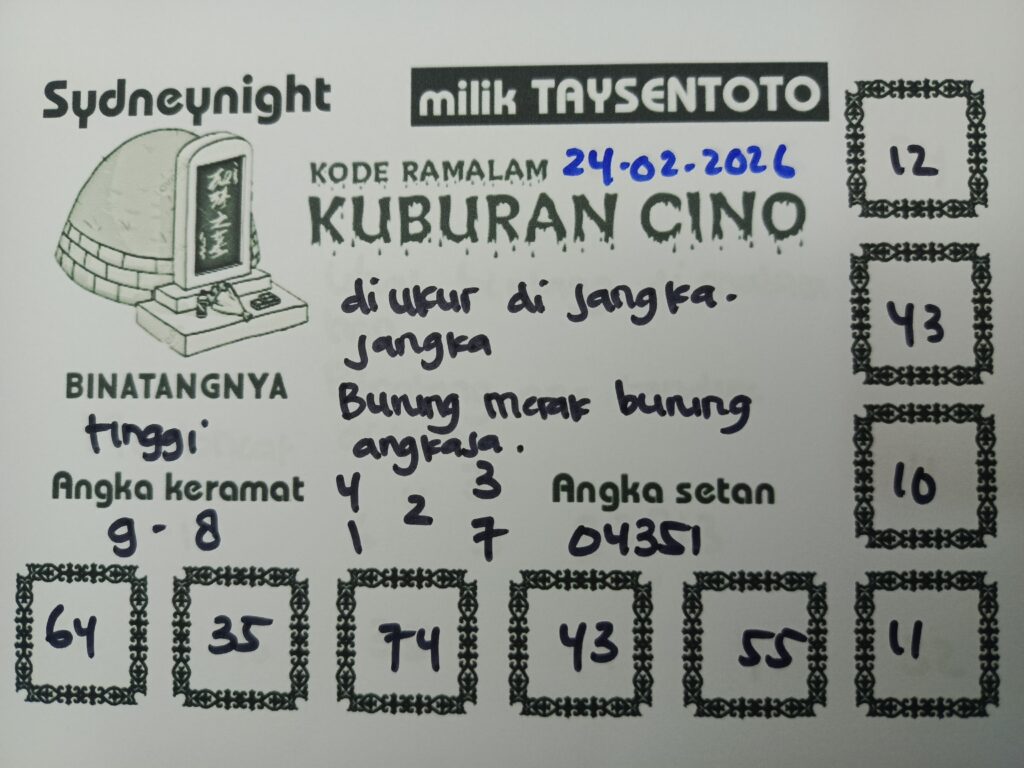 Sydneynight
milik TAYSENTOTO
KODE RAMALAM 24-02-2026
KUBURAN CINO
di ukur di jangka.
jangka
Burung merak burung
angkasa.
BINATANGNYA
tinggi
Angka keramat
9 - 8
4 3
2
1 7
Angka setan
04351
12
43
10
64 35 74 43 55 11